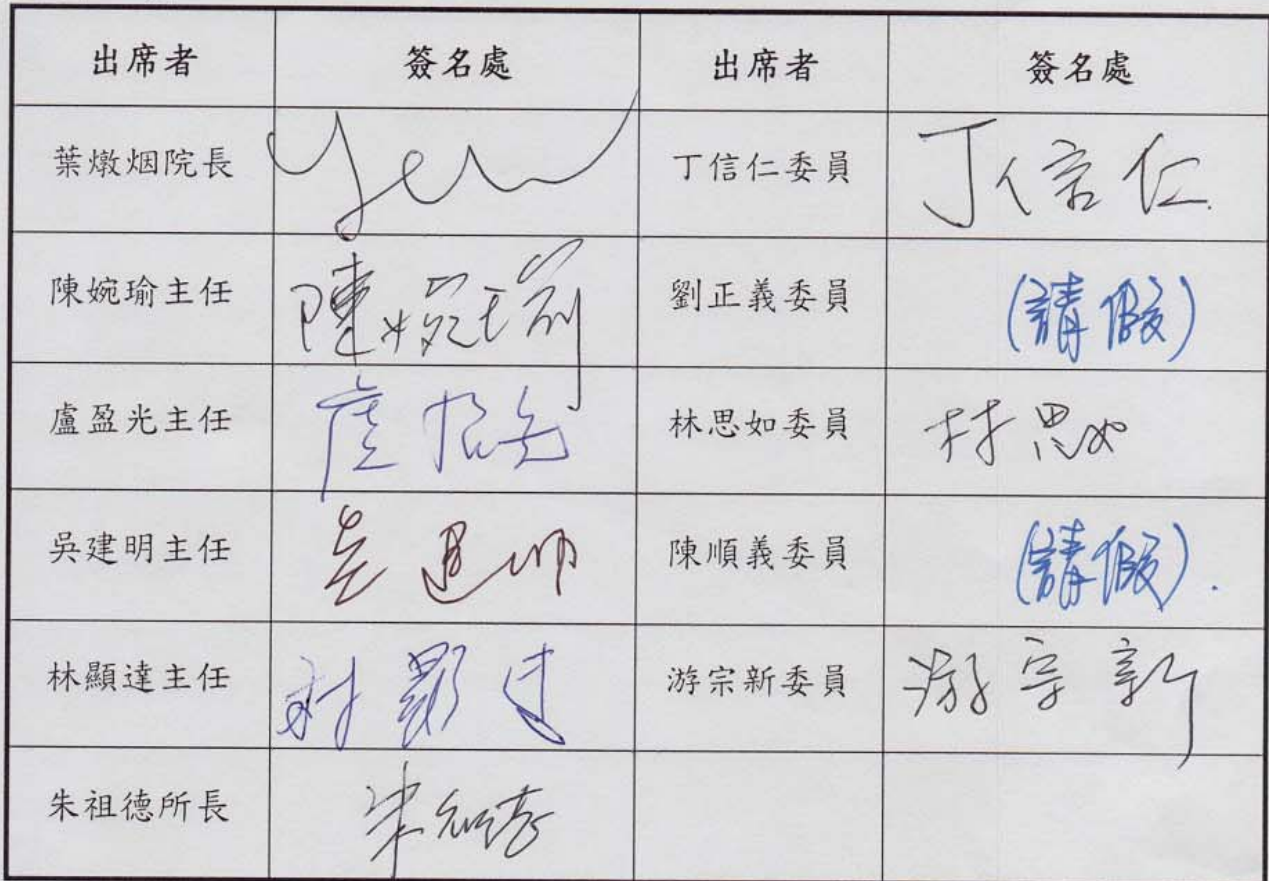 出席者 簽名處 出席者 簽名處
葉燉烟院長 Yeh 丁信仁委員 丁信仁
陳婉瑜主任 陳婉瑜 劉正義委員 (請假)
盧盈光主任 盧盈光 林思如委員 林思如
吳建明主任 吳建明 陳順義委員 (請假).
林顯達主任 林顯達 游宗新委員 游宗新
朱祖德所長 朱祖德